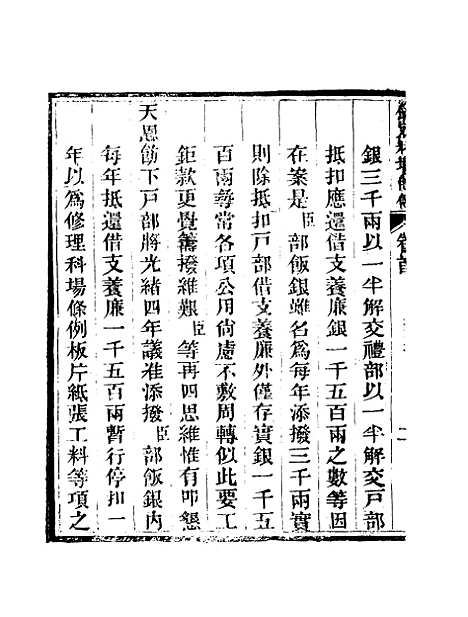 欽定科場條例 卷首 二
銀三千兩以一半解交禮部以一半解交戶部
抵扣應還借支養廉銀一千五百兩之數等因
在案是臣部飯銀雖名爲每年添撥三千兩實
則除抵扣戸部借支養廉外僅存實銀一千五
百兩尋常各項公用尙慮不敷周轉似此要工
鉅款更覺籌撥維艱臣等再四思維惟有叩懇
天恩飭下戸部將光緒四年議准添撥臣部飯銀内
每年抵還借支養廉一千五百兩暫行停扣一
年以爲修理科場條例板片紙張工料等項之